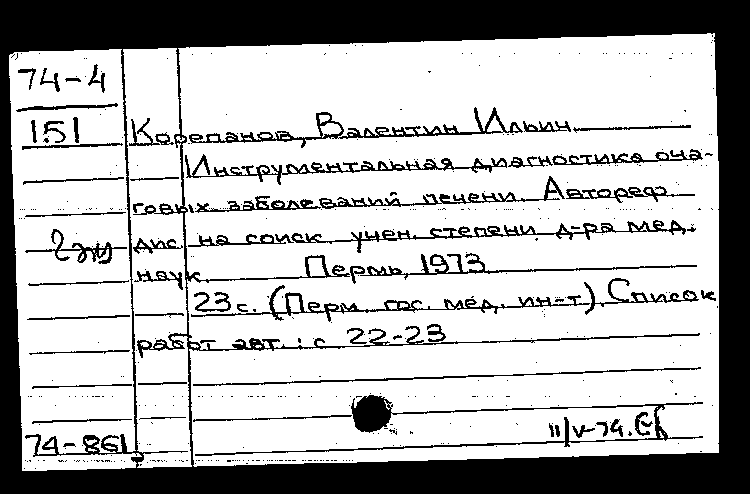 74-4
151
Корепанов, Валентин Ильич.
Инструментальная диагностика оча-
говых заболеваний печени. Автореф.
2 эк
дис. на соиск. учен. степени д-ра мед.
наук. Пермь, 1973
23 с. (Перм. гос. мед. ин-т). Список
работ авт.: с 22-23
74-861
11/V-74.